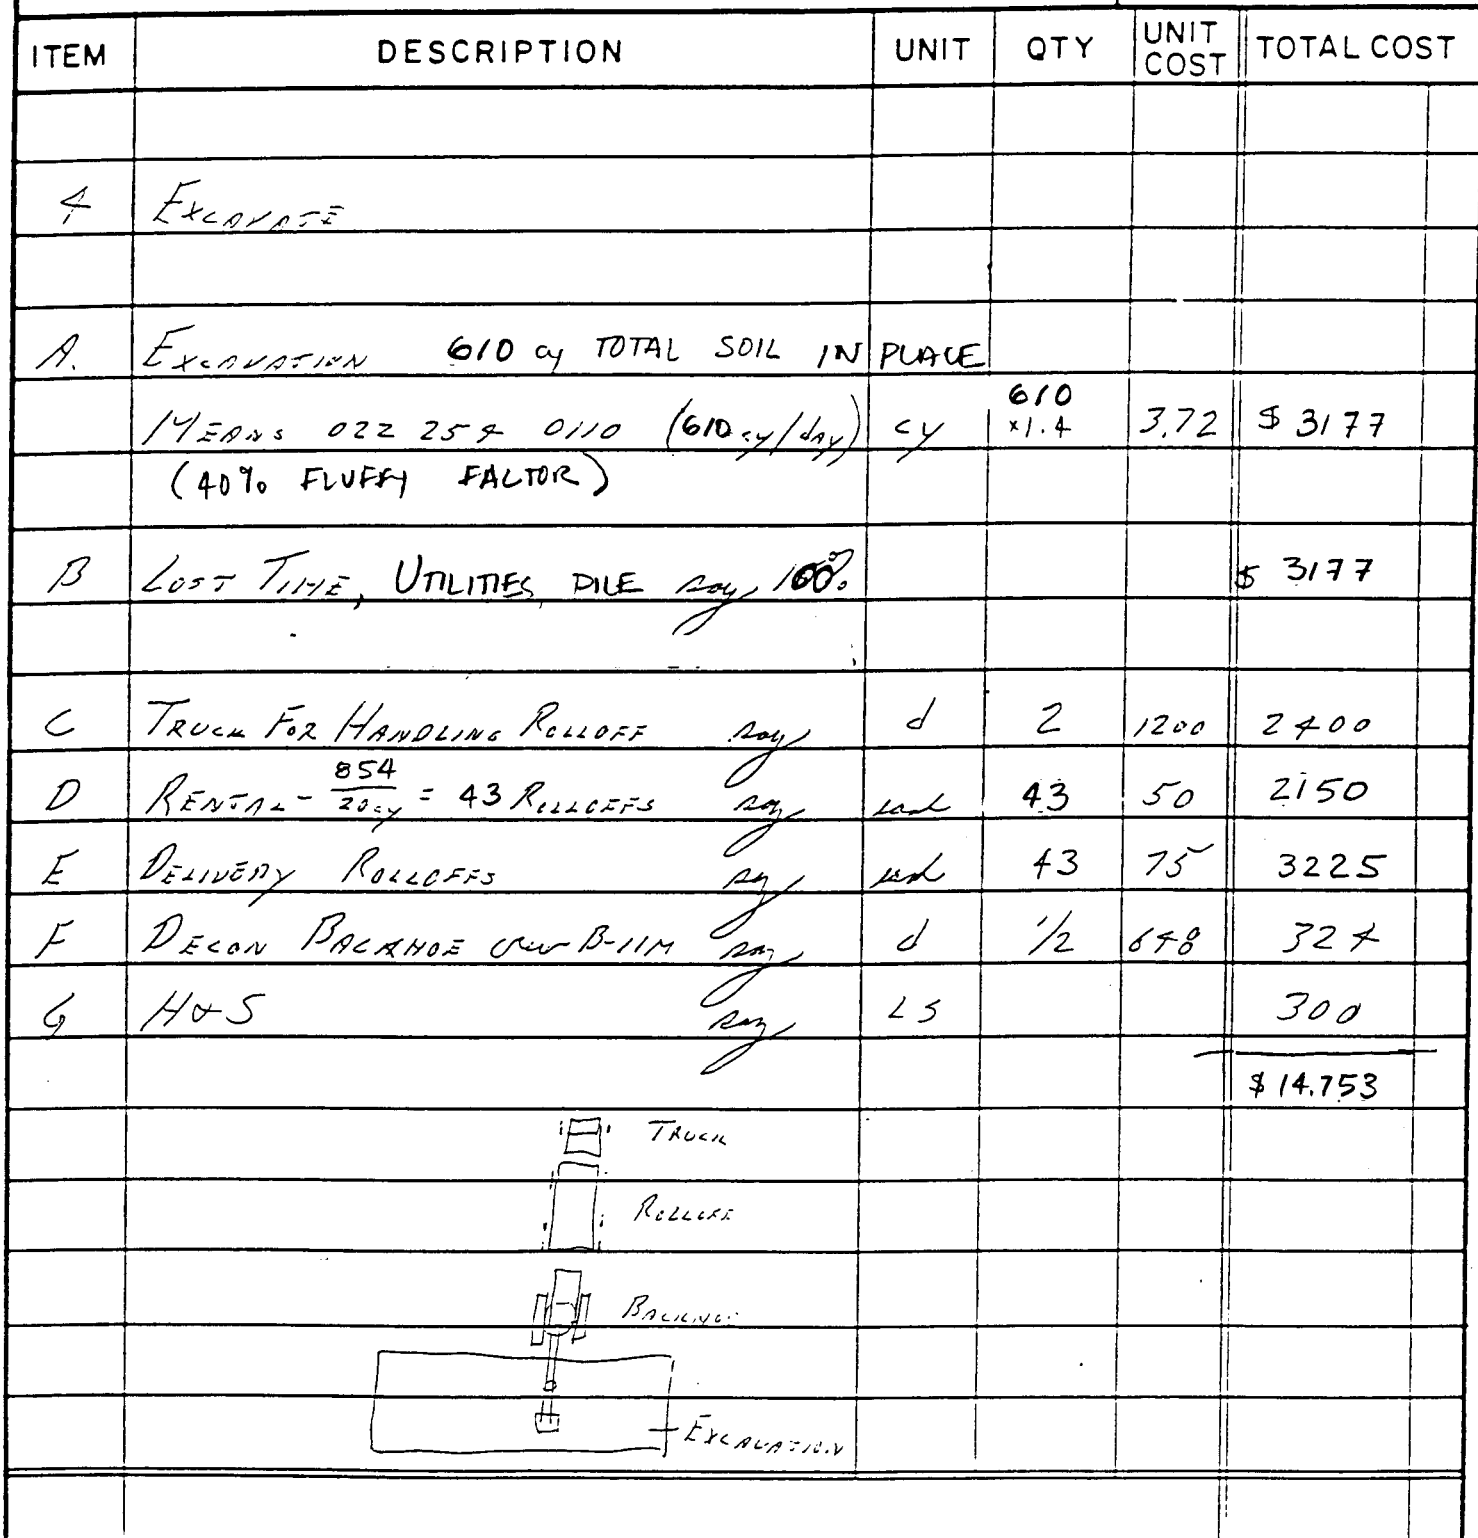 ITEM DESCRIPTION UNIT QTY UNIT COST TOTAL COST
4 EXCAVATE
A. EXCAVATION 610 cy TOTAL SOIL IN PLACE
MEANS 022 254 0110 (610 cy/day) cy 610 x1.4 3.72 $ 3177
(40% FLUFFY FACTOR)
B LOST TIME, UTILITIES, PILE say 100% $ 3177
C TRUCK FOR HANDLING ROLLOFF say d 2 1200 2400
D RENTAL - 854/20cy = 43 ROLLOFFS say 43 50 2150
E DELIVERY ROLLOFFS say 43 75 3225
F DECON BACKHOE B-11M say d 1/2 648 324
G H&S say LS 300
$ 14.753
TRUCK
ROLLOFF
BACKHOE
EXCAVATION